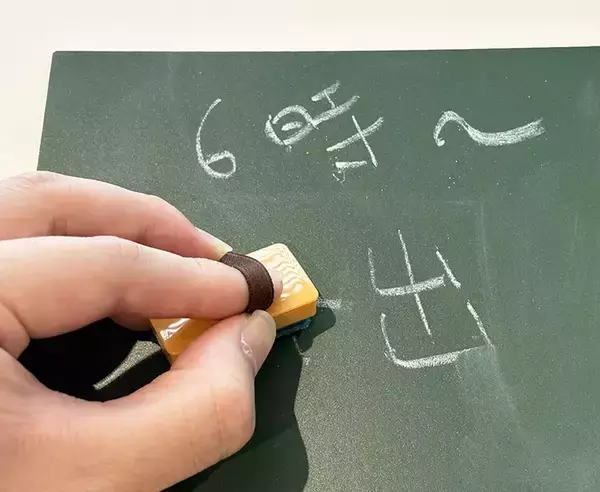 6時〜
出